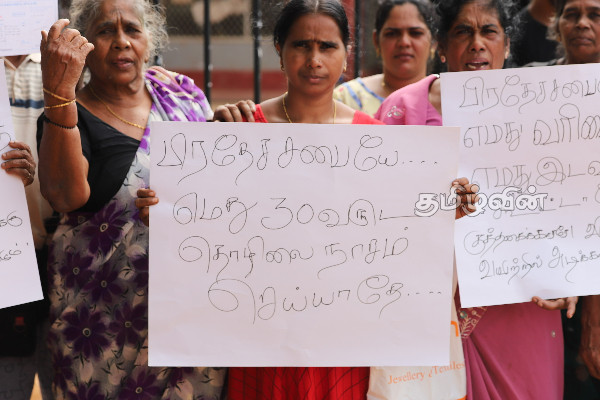 பிரதேச சபையே....
எமது 30 வருட
தொழிலை நாசம்
செய்யாதே....
பிரதேசசபை
எமது வரி
எமது இட
குத்தகைக்கா
வயிற்றில் அடிக்க
தமிழ்வின்
Jewellery & Textiles